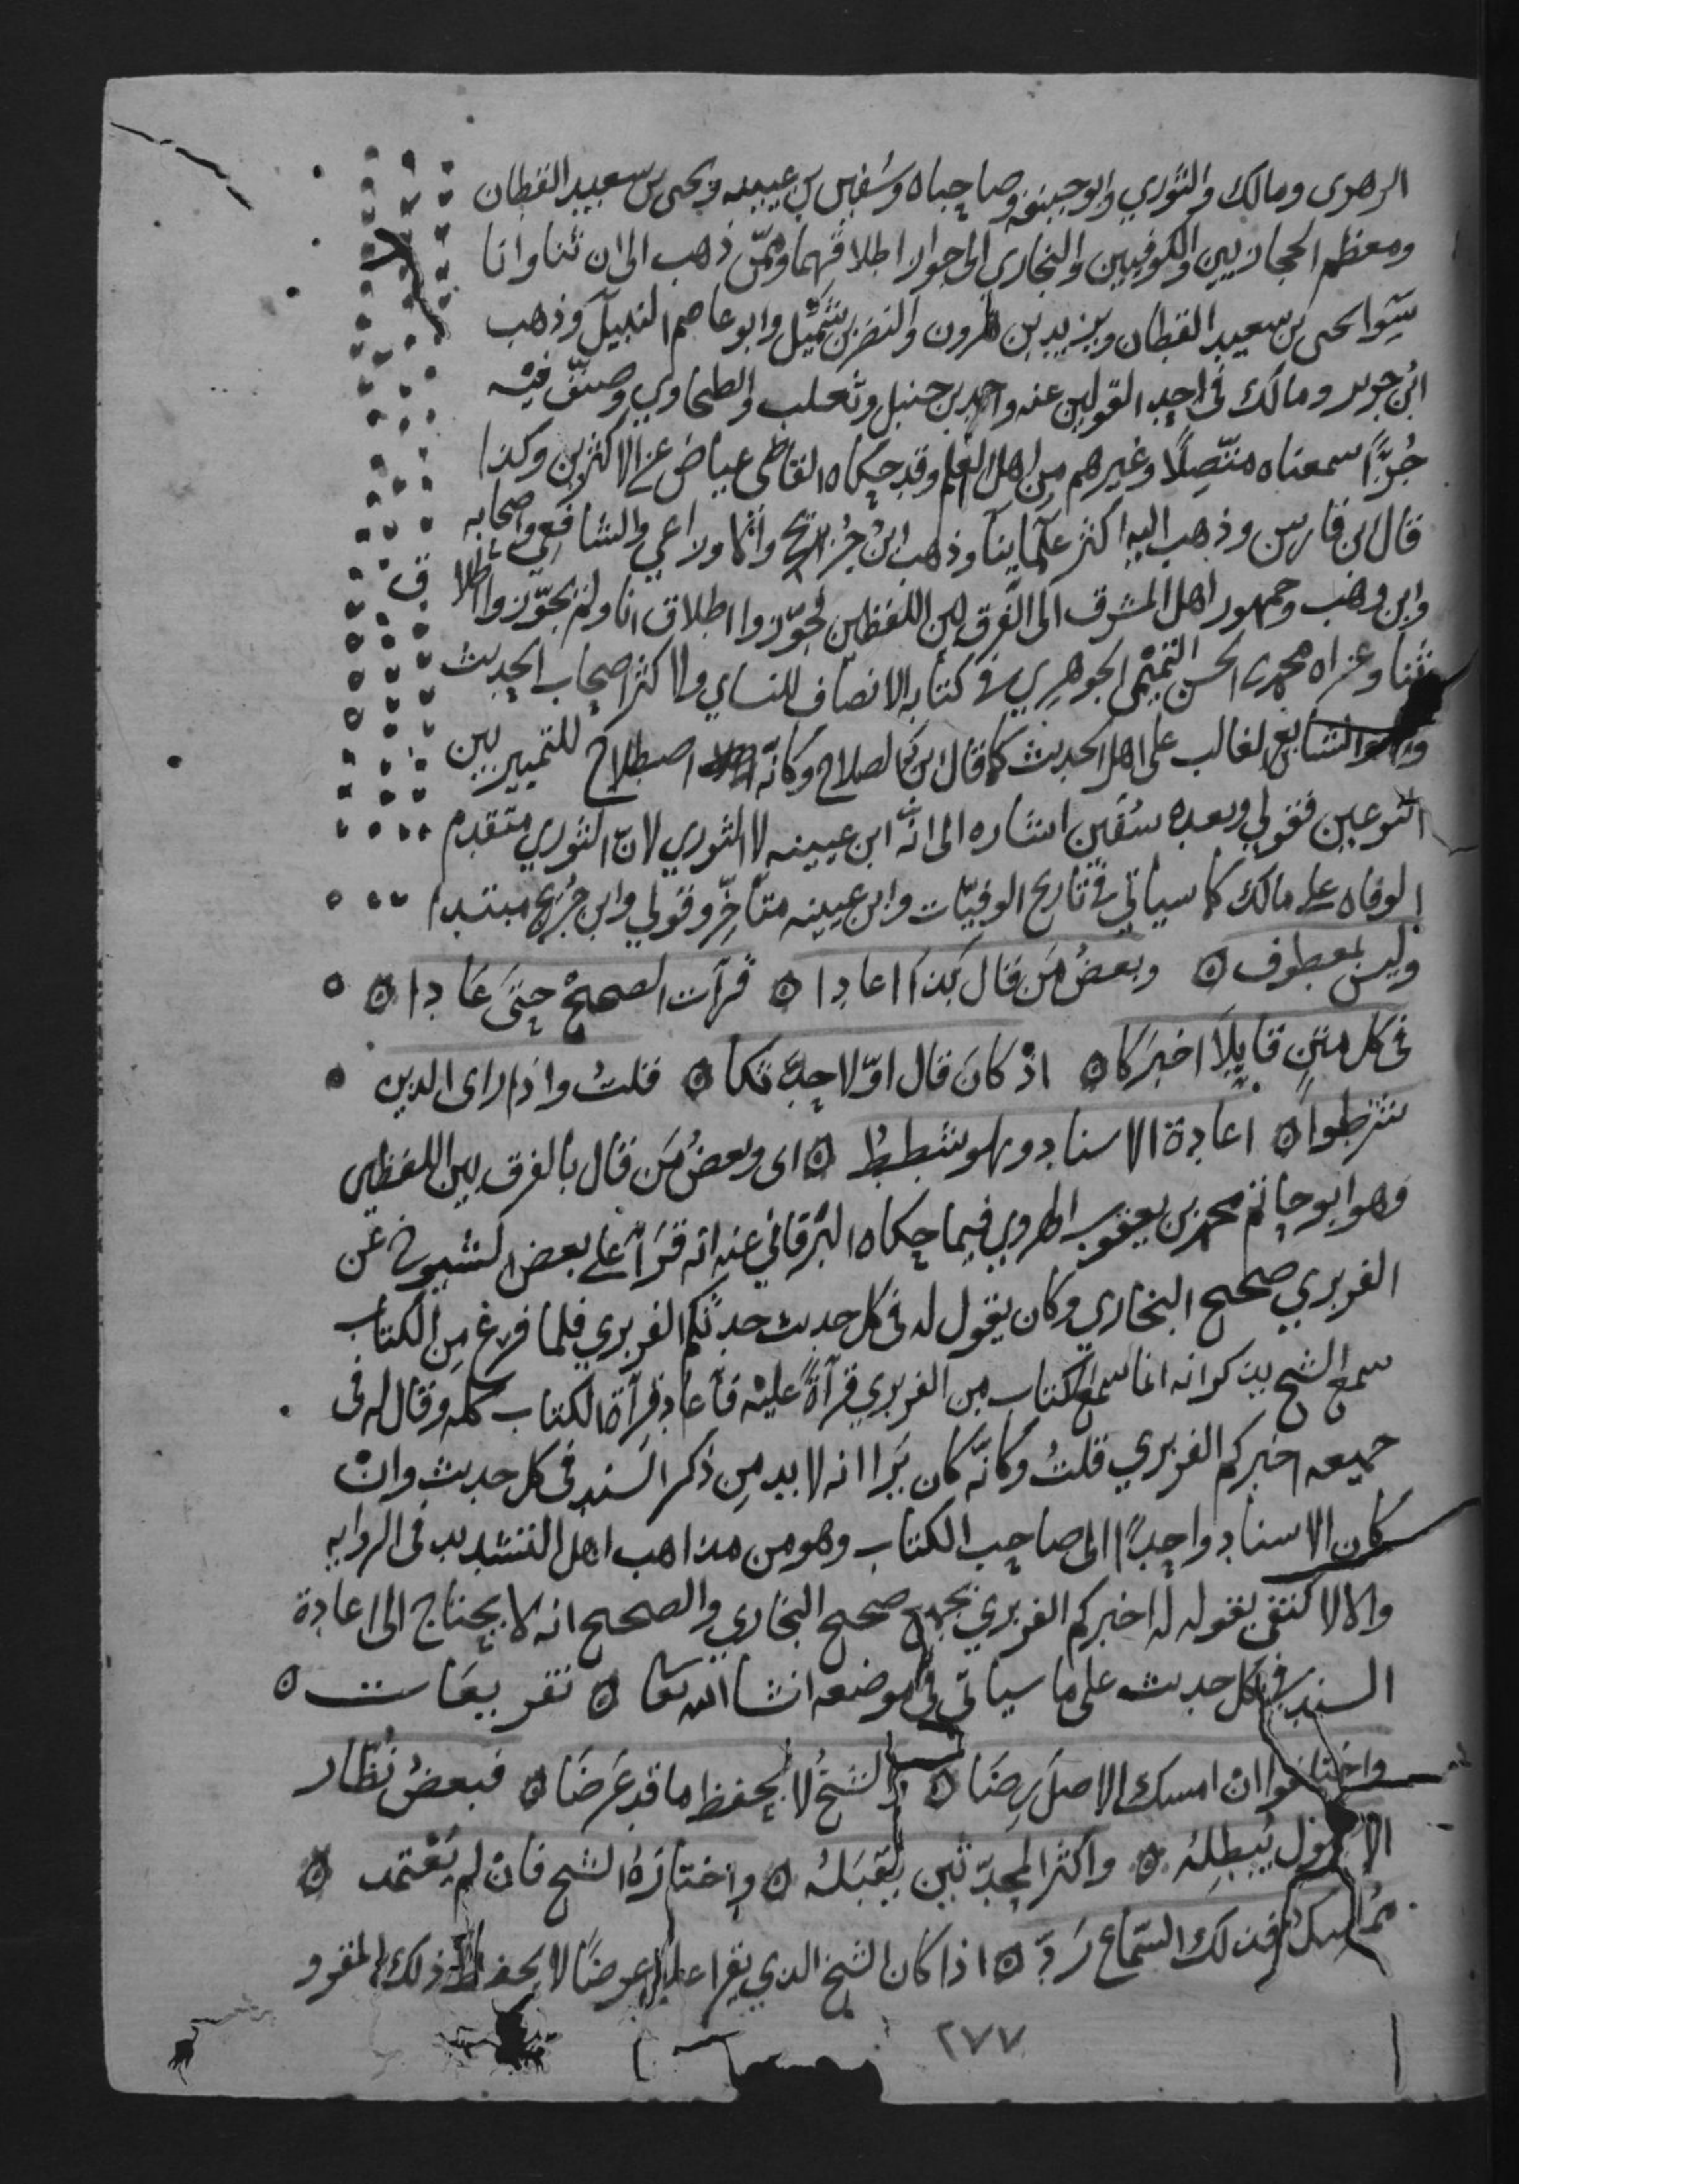 الزهرى ومالك والثوري وابو حنيفه وصاحباه وسُفين بن عيينه ويحيى بن سعيد القطان
ومعظم الحجازيين والكوفيين والبخاري الى جواز اطلاقهما وممّن ذهب الى ان ثنا وانا
سَوا يحيى بن سعيد القطان ويزيد بن هرون والنضر بن شُمَيْل وابو عاصم النبيل وذهب
ابن جرير ومالك فى احد القولين عنه واحمد بن حنبل وثعلب والطحاوي وصنّف فيه
جُزءًا سمعناه متّصِلًا وغيرهم من اهل العلم وقد حكاه القاضى عياض عن الاكثرين وكذا
قال ابن فارس وذهب اليه اكثر علمآينا وذهب ابن جُريج والاوزاعي والشافعي واصحابه
وابن وهب وجمهور اهل المشرق الى الفَرق بين اللفظين فجوّزوا اطلاق انا ولم يجوّزوا اطلاق
ثنا وعزاه محمد بن الحسن التميمي الجوهري في كتابه الانصاف للنساي ولاكثر اصحاب الحديث
وهو الشايع الغالب على اهل الحديث كما قال ابن الصلاح وكانّه اصطلاح للتمييز بين
النوعين فقولي وبعده سُفين اشاره الى انّه ابن عيينه لا الثوري لانّ الثوري متقدم
الوفاه على مالك كما سياتي في تاريخ الوفيّات وابن عيينه متأخّر وقولي وابن جُريج مبتدا
وليس بمعطوف ه وبعضُ مَن قال بذا اعادا ه قرآت الصحيحْ حتىَ عَادا ه
فى كل متنٍ قايلًا اخبَركا ه اذْ كانَ قال اوّلا حدّثكا ه قلتُ وذا راى الذين
شترطوا ه اعادة الاسناد وهو شططُ ه اى وبعضُ مَن قال بالفرق بين اللفظين
وهو ابو حاتم محمد بن يعقوب الهروي فيما حكاه البَرقاني عنه انه قَرَأ على بعض الشيوخ عن
الفربري صحيح البخاري وكان يقول له فى كل حديث حدثكم الفربري فلما فرغ مِن الكتاب
سمع الشيخ يذكر انه انما سمع الكتاب من الفربري قرآةً عليْه فأعاد قرآة الكتاب كله وقال له فى
جميعه اخبركم الفربري قلتُ وكانّه كان يَرا انه لا بد مِن ذكر السَند فى كل حديث وانْ
كان الاسناد واحدًا الى صاحب الكتاب وهو من مذاهب اهل التشديد فى الروايه
والا لاكتفى بقوله له اخبركم الفربري بجميع صحيح البخاري والصحيح انه لا يحتاج الى اعادة
السند في كل حديث على ما سياتى فى موضعه انشا الله تعا ه تفريعَات ه
واختلفوا ان امسك الاصلَ رِضَا ه والشيخُ لا يحفظ ما قد عَرضَا ه فبعضُ نُظّار
الاصول يُبطِلُه ه واكثر المحدّثين يقبَلُه ه واختارَهُ الشيخ فانْ لم يُعْتمد ه
مُمسِكُه فذلك السّماع رَدّ ه اذا كان الشيخ الذي يقرا عليه عرضًا لا يحفظ ذلك المقرو
٢٧٧